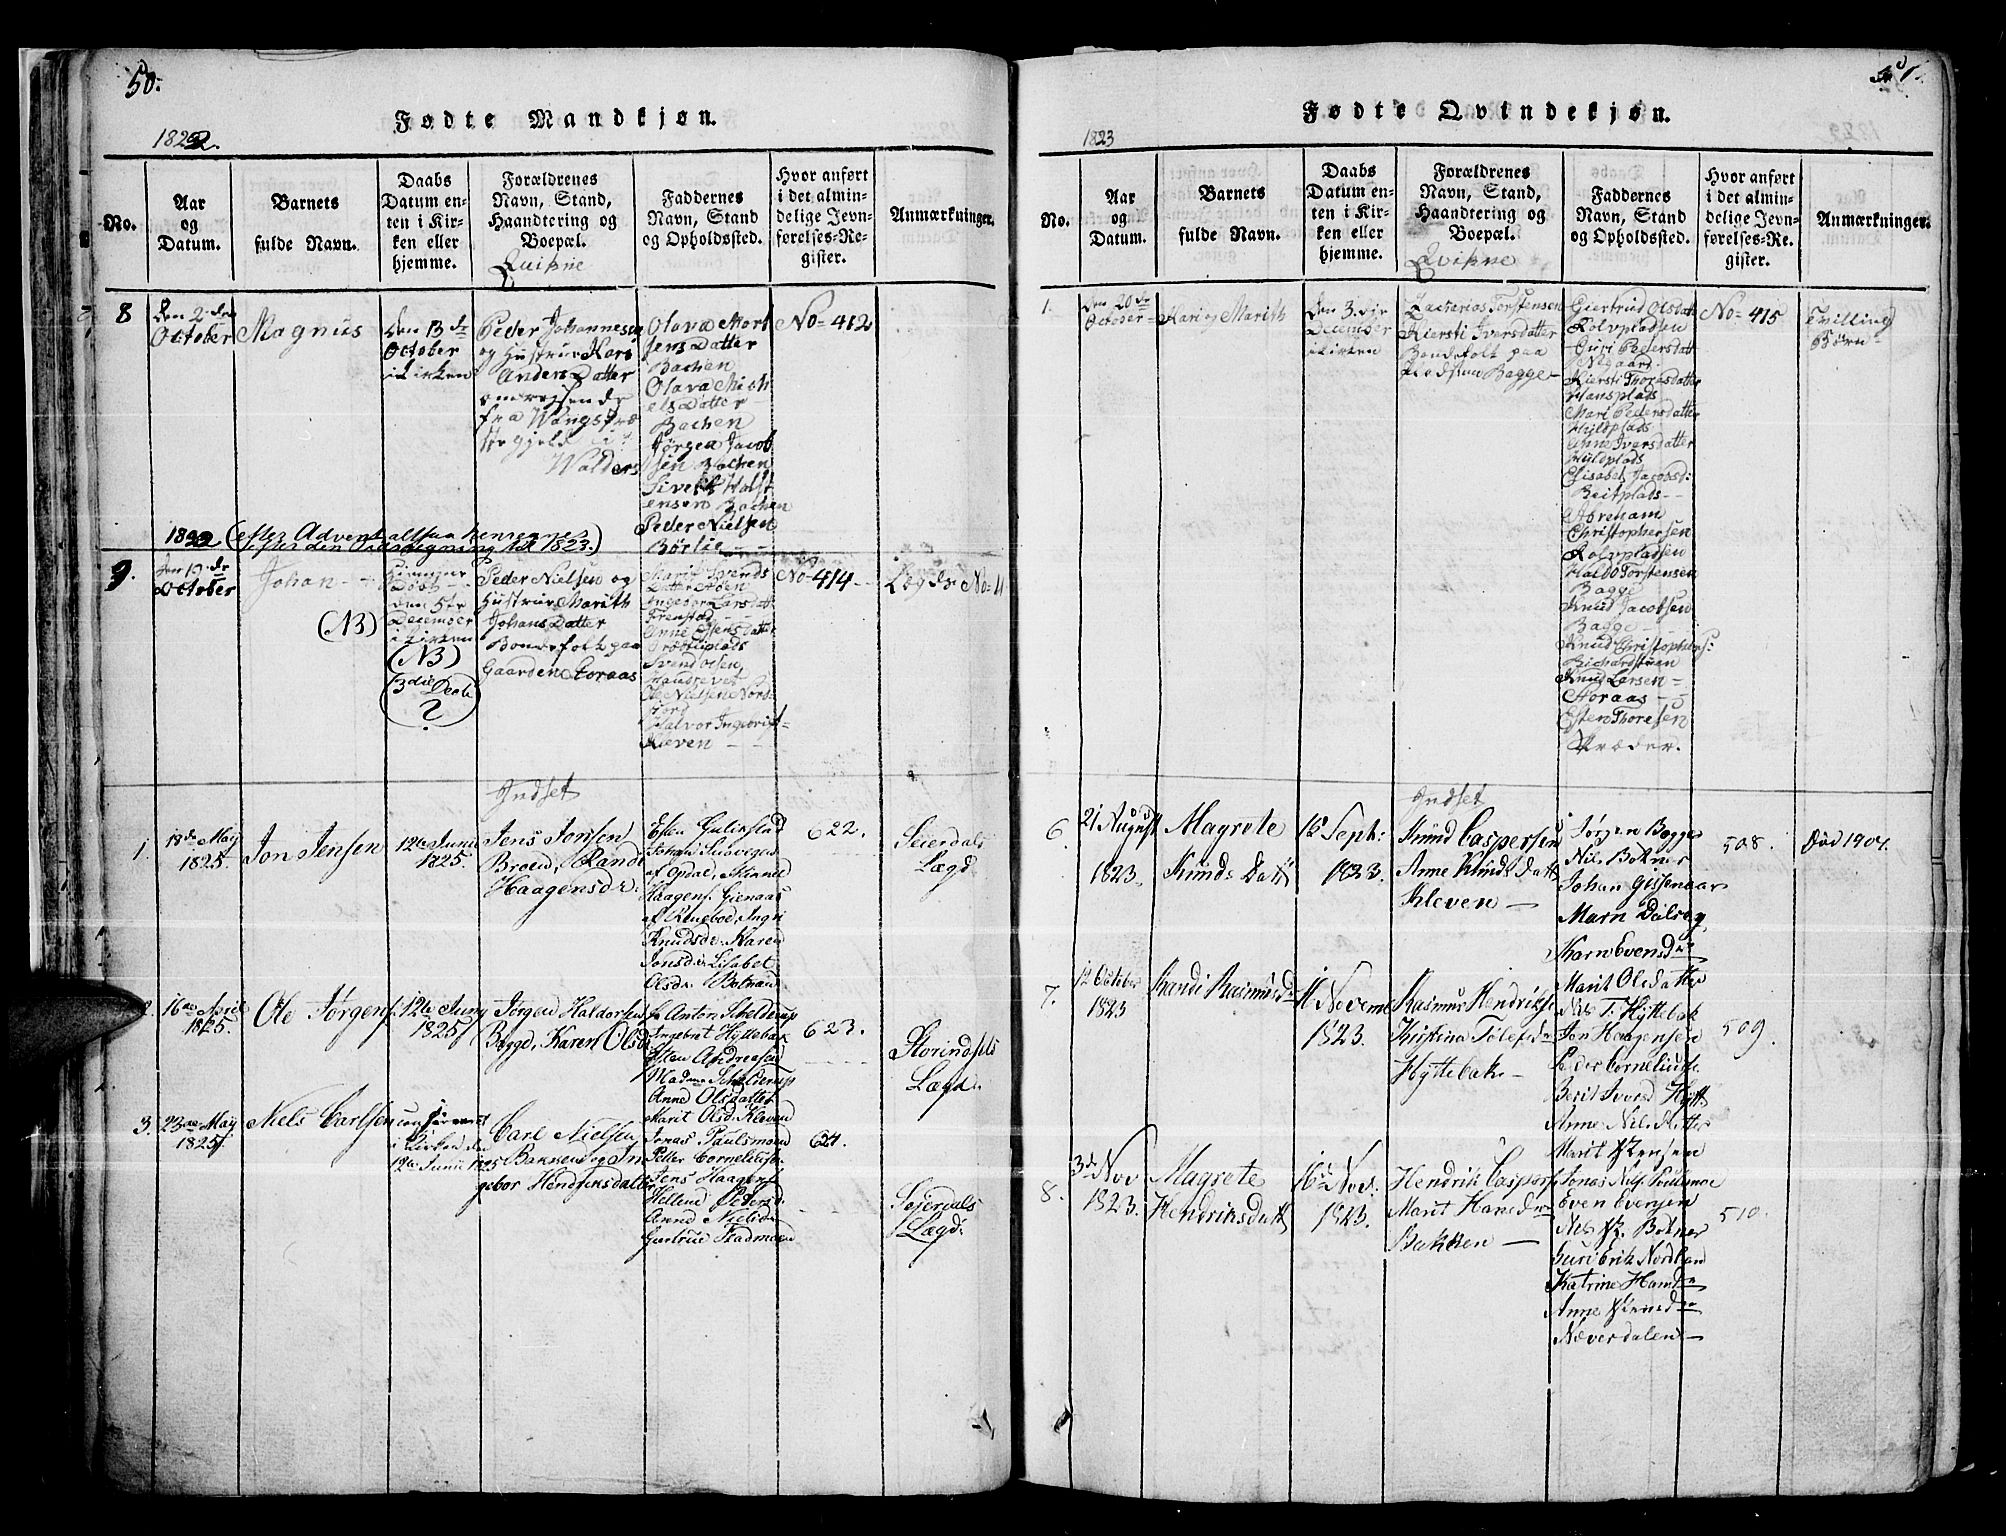 50.
Fødte Mandkjøn.
1822.
No.
Aar
og
Datum.
Barnets
fulde Navn.
Daabs
Datum en-
ten i Kir-
ken eller
hjemme.
Forældrenes
Navn, Stand,
Haandtering og
Boepæl.
Qvikne
Faddernes
Navn, Stand
og Opholdssted.
Hvor anført
i det almin-
delige Jevn-
førelses-Re-
gister.
Anmærkninger.
8
den 2 den
October
Magnus
den 13 de
October
i kirken
Peder Johannesen
og Hustrue Kari
Anders Datter
omreisende
fra Wangs Præ
stegjeld i
Walders
Olava Mort
sens Datter
Bachen
Olava Mich
els Datter
Bachen
Jørgen Jacob
sen Bachen
Sivert Halst
ensen Bachen
Peder Nielsen
Børlie
No=412
1822 (efter Advent altsaa henregnes
efter den Tidsbegyning til 1823.)
9.
October
Johan
(NB)
Døbt
den 5te
December
i kirken
(NB)
3die Deels
?
Peder Nielsen og
Hustrue Marith
Johans Datter
Bondefolk paa
Gaarden Storaas
Marit Svends
Datter
Ingebor Larsdatt
Frenstad
Anne Estens Datter
Svend Olsen
Ole Nielsen Nord
fjord
Halvor Ingebrigt
Kleven
No=414
Lægds No=11
Indset
1.
18de May
1825.
Jon Jensen
12te Junii
1825.
Jens Jonsen
Broen, Randi
Haagensdr.
Esten Gulikstad
Johan
af Opdal,
Haagens. Gienaas
af Rennebo, Ingri
Knudsdr. Karen
Jonsd: Lisabet
Olsdr. Botnan
622.
Seierdals
Lægd
2.
16de April
1825.
Ole Jørgens.
12te Juny
1825
Jørgen Haldorsen
Bagge, Karen Olsd.
Anton Schelderup
Ingebret Hyttebak
Esten Andreasen
Madme Schelderup
Anne Olsdatter
Marit Olsd. Kleven
623.
Storindsets
Lægd.
3.
23de May
1825.
Niels Carlsen
confirmeret
i Kirken den
12te Junii 1825
Carl Nielsen
Bakken og In
gebor Hendriksdatter
Jonas Paulsmoen
Peder Cornelius
Jens Haagens
Hellene Pedersd.
Anne Nielsd
Giertrue Stadmoen
624.
Seierdals
Lægd.
51.
Fødte Qvindekjøn.
1823
No.
Aar
og
Datum.
Barnets
fulde Navn.
Daabs
Datum en-
ten i Kir-
ken eller
hjemme.
Forældrenes
Navn, Stand,
Haandtering og
Boepæl.
Qvikne
Faddernes
Navn, Stand
og Opholdssted.
Hvor anført
i det almin-
delige Jevn-
førelses-Re-
gister.
Anmærkninger.
1.
den 20 de
October
Kari og Marith
den 3die
December
i kirken
Zacharias Torstensen
Kiersti Iversdatter
Bondefolk paa
Bagge
Giertrud Olsdatt
Rolvpladsen
Guri Pedersdatt
Nigaard
Kiersti Thoresdatter
Hansplads
Mari Pedersdatter
Hyldplads
Anne Iversdatter
Hyldplads
Elisabet Jacobsd:
Beitplads
Abreham
Christophersen
Rolvpladsen
Haldo Torstensen
Bagge
Knud Jacobsen
Bagge
Knud Christophers:
Richardstuen
Knud Larsen
Storaas
Esten Thoresen
Stræder.
No=415
Tvilling
Børn
Indset
6.
21 August
1823.
Magrete
Knuds Datt
15 Septb:
1823.
Knud Caspersen
Anne Knuds Datt
Kleven
Jørgen Bagge
Nils Botner
Johan Gissenaas
Marn Dalseg
Karn Evensdr
508.
Død 1907.
7.
12 October
1823
Randi Rasmusdr
11 Novemb
1823.
Rasmus Hendriks
Kristina Tolefsdr
Hyttebak
Marit Olsdatter
Nils T. Hyttebak
Jon Haagensen
Peder Cornelius
Berit Iversd Hytt
Anne Nils Datter
509.
8.
3de Nov
1823.
Magrete
Hendriksdatt
16de Nov.
1823.
Hendrik Caspers
Marit Hansdr
Bakken
Marit Jensen
Jonas Nils. Poulsmoe
Even Evensen
Nils Botner
Guri Erik Nordban
Katrine Hansdr
Anne Jensdr
Næverdalen
510.